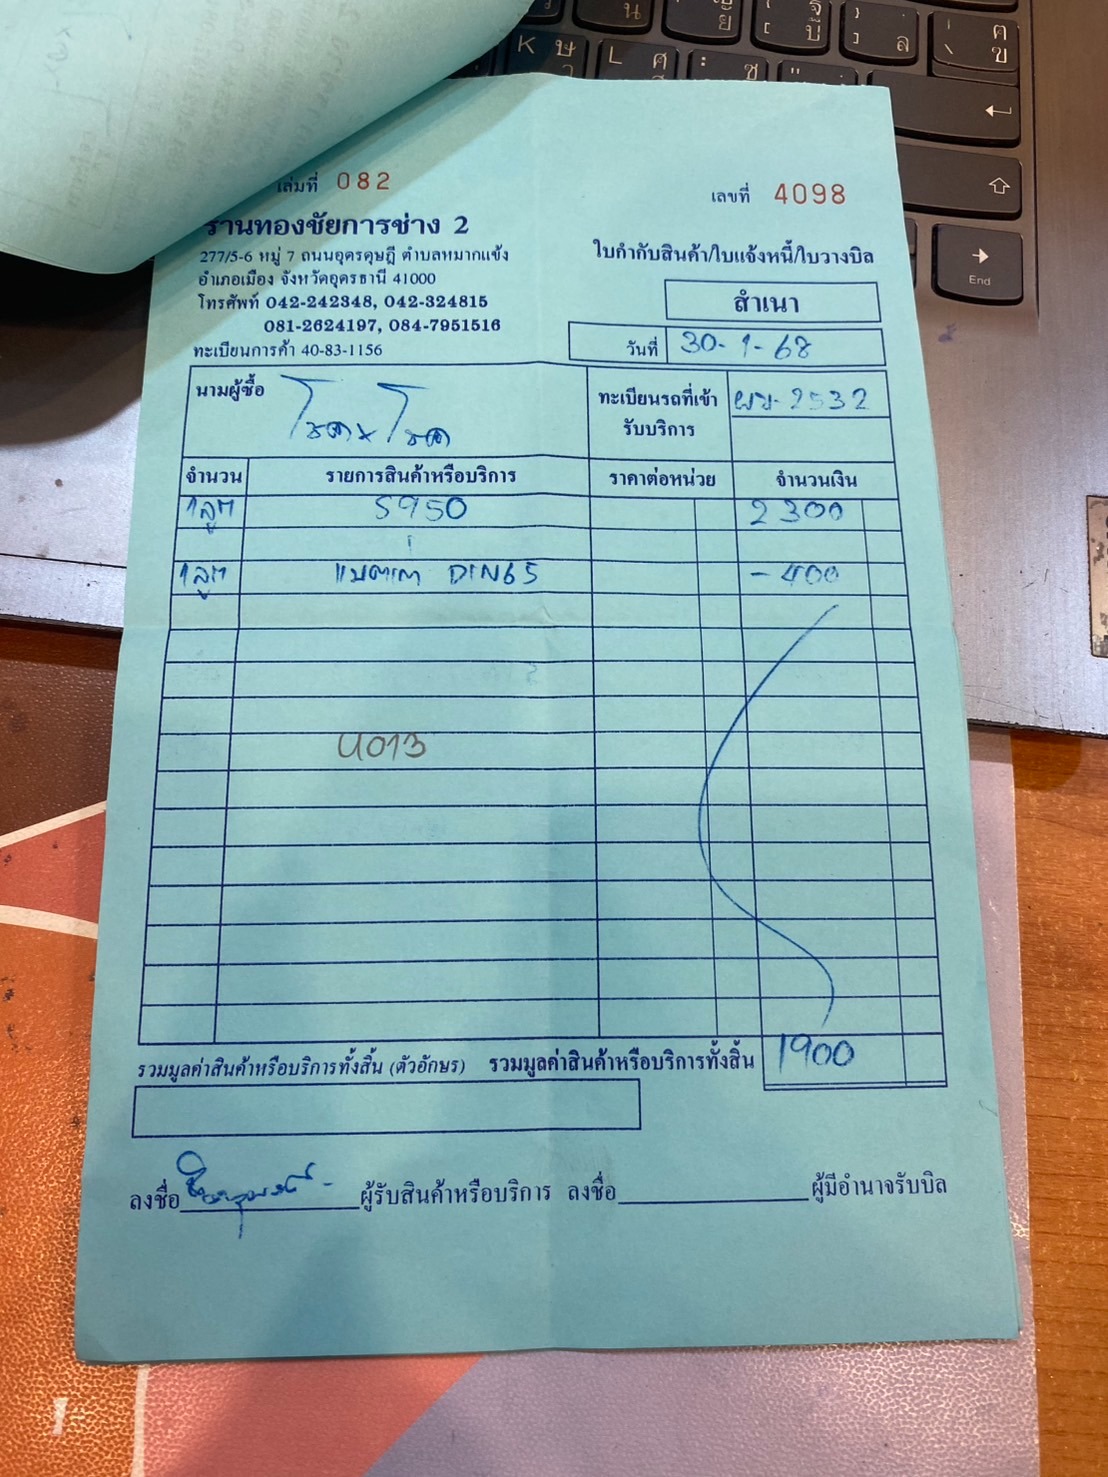 เล่มที่ 082
เลขที่ 4098
ร้านทองชัยการช่าง 2
277/5-6 หมู่ 7 ถนนอุดรดุษฎี ตำบลหมากแข้ง
อำเภอเมือง จังหวัดอุดรธานี 41000
โทรศัพท์ 042-242348, 042-324815
081-2624197, 084-7951516
ทะเบียนการค้า 40-83-1156
ใบกำกับสินค้า/ใบแจ้งหนี้/ใบวางบิล
สำเนา
วันที่ 30-1-68
นามผู้ซื้อ
ทะเบียนรถที่เข้ารับบริการ 2532
จำนวน รายการสินค้าหรือบริการ ราคาต่อหน่วย จำนวนเงิน
1ลูก S950 2300
1ลูก แบตเก่า DIN65 -400
U013
รวมมูลค่าสินค้าหรือบริการทั้งสิ้น (ตัวอักษร) รวมมูลค่าสินค้าหรือบริการทั้งสิ้น 1900
ลงชื่อ ผู้รับสินค้าหรือบริการ ลงชื่อ ผู้มีอำนาจรับบิล
K ษ
L ศ
ฅ
ฃ
End